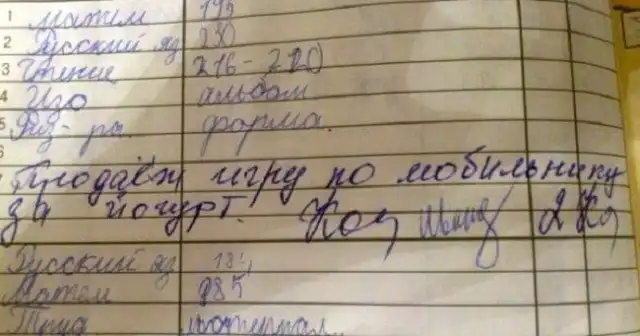 1 Матем 195
2 Русский яз 230
3 Чтение 216-220
4 Изо альбом
5 Физ-ра форма.
6
Продаёт игру по мобильнику
за йогурт. 2
Русский яз 184
Матем 985
Труд